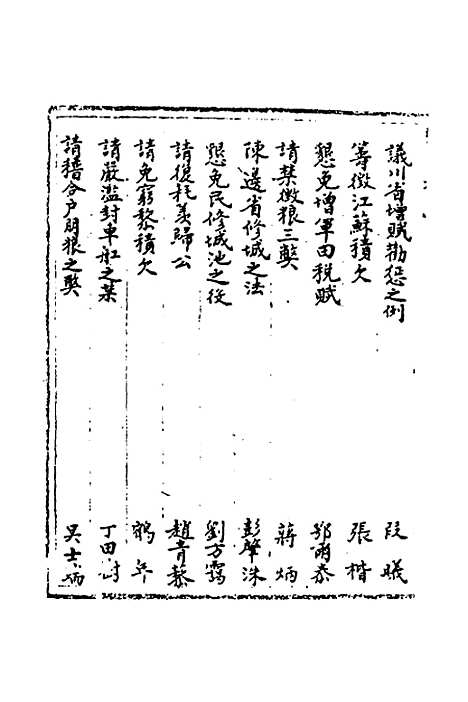 議川省增賦勸懲之例　段曦
籌徵江蘇積欠　張楷
懇免增軍田稅賦　鄂爾泰
請禁徵粮三弊　蔣炳
陳邊省修城之法　彭肇洙
懇免民修城池之役　劉方靄
請復耗羨歸公　趙青藜
請免窮黎積欠　鶴年
請嚴濫封車船之禁　丁田澍
請稽合戶朋粮之弊　吳士功